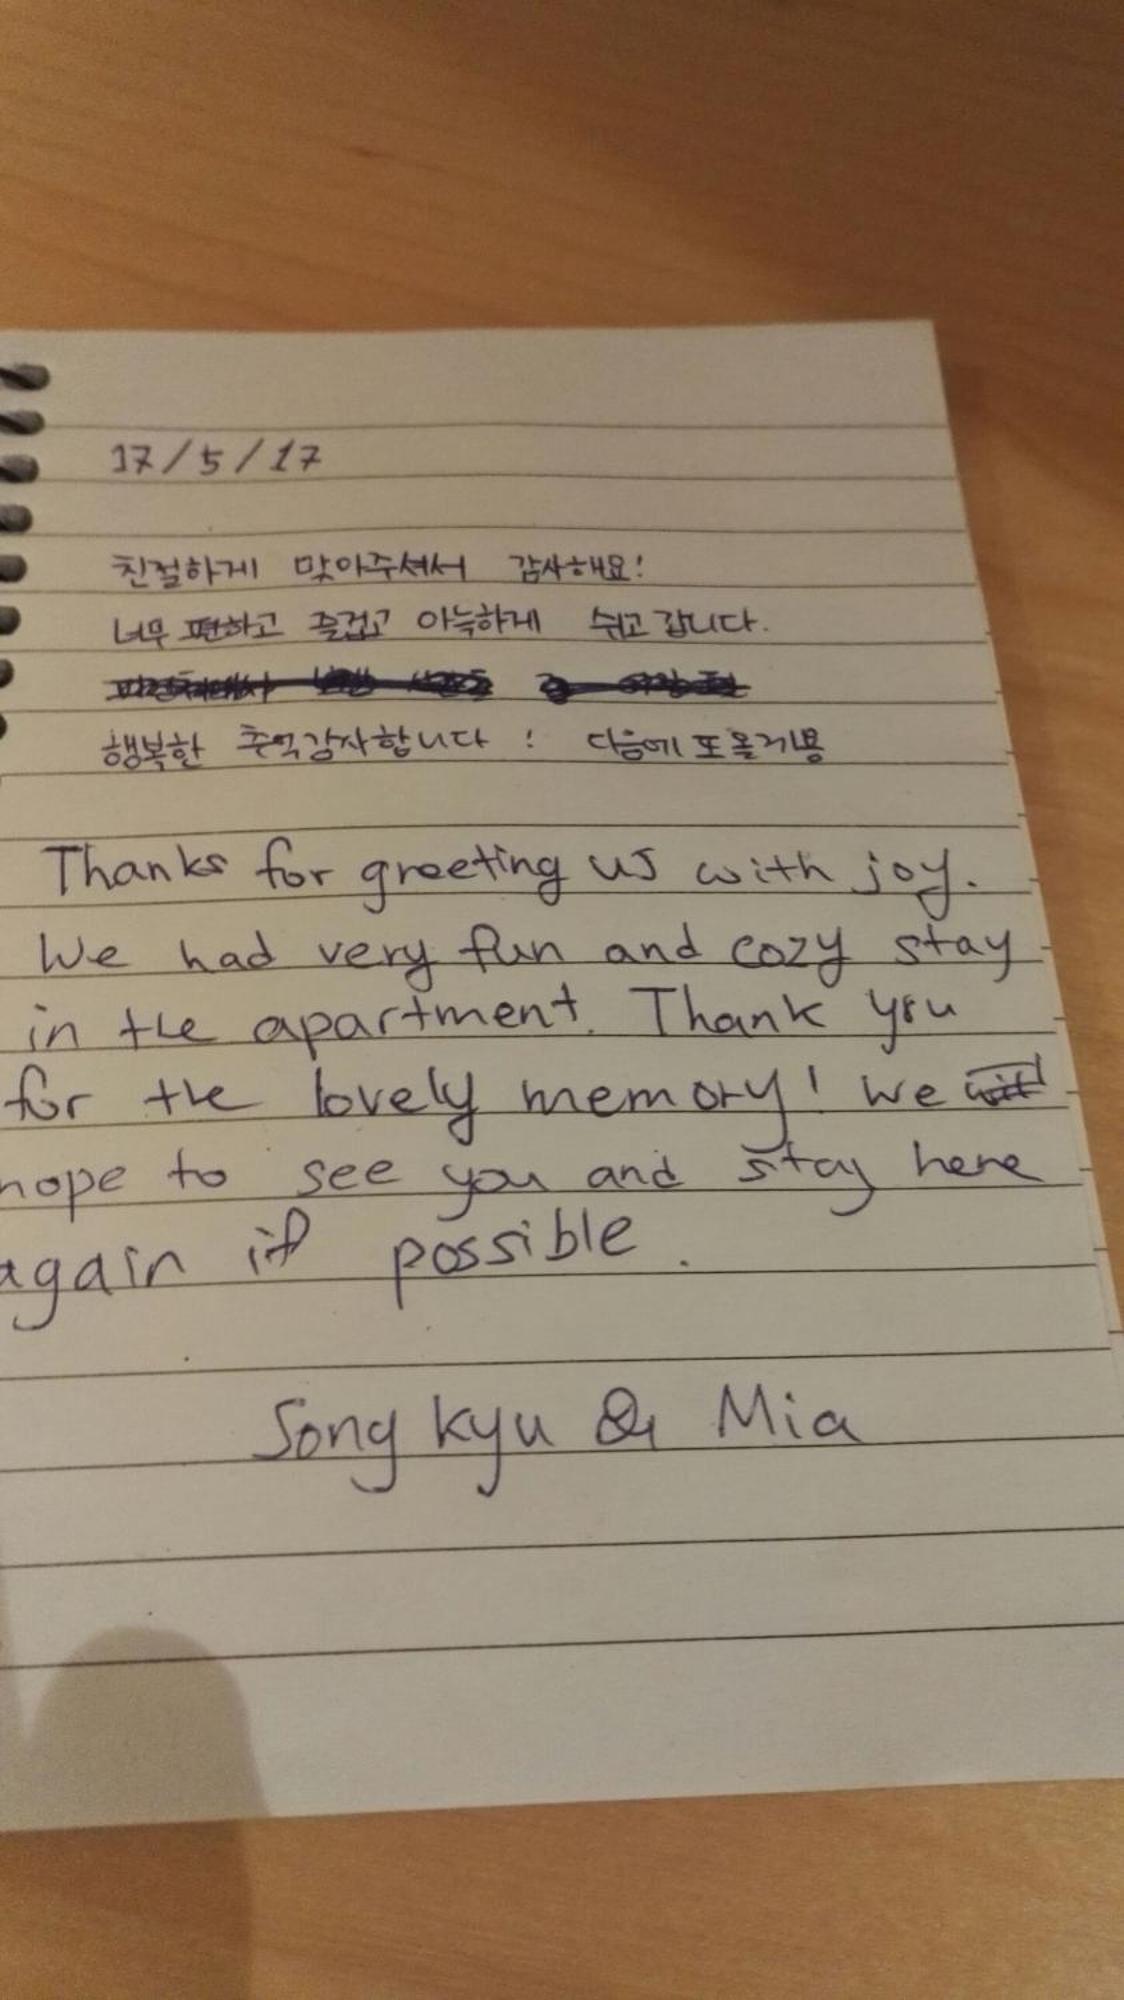 17/5/17
친절하게 맞아주셔서 감사해요!
너무 편하고 즐겁고 아늑하게 쉬고 갑니다.
행복한 추억감사합니다! 다음에 또 올게용
Thanks for greeting us with joy.
We had very fun and cozy stay
in the apartment. Thank you
for the lovely memory! We
hope to see you and stay here
again if possible.
Song kyu & Mia